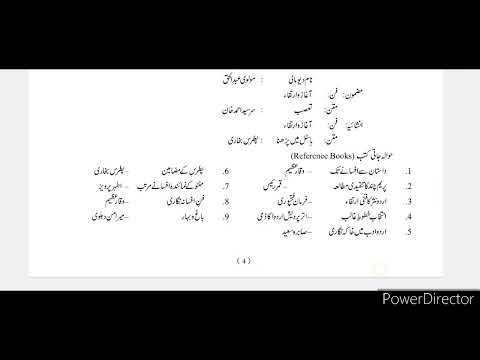 نام دیو مالی : مولوی عبدالحق
مضمون: فن: آغاز و ارتقاء
متن: تعصب : سرسید احمد خان
انشائیہ: فن: آغاز و ارتقاء
متن: ہاسٹل میں پڑھنا : پطرس بخاری
حوالہ جاتی کتب (Reference Books)
1. داستان سے افسانے تک – وقار عظیم 6. پطرس کے مضامین – پطرس بخاری
2. پریم چند کا تنقیدی مطالعہ – قمر رئیس 7. منٹو کے نمائندہ افسانے مرتب – اطہر پرویز
3. اردو نثر کا فنی ارتقاء – فرمان فتحپوری 8. فن افسانہ نگاری – وقار عظیم
4. انتخاب خطوط غالب – اتر پردیش اردو اکاڈمی 9. باغ و بہار – میر امن دہلوی
5. اردو ادب میں خاکہ نگاری – صابرہ سعید
(4)
PowerDirector